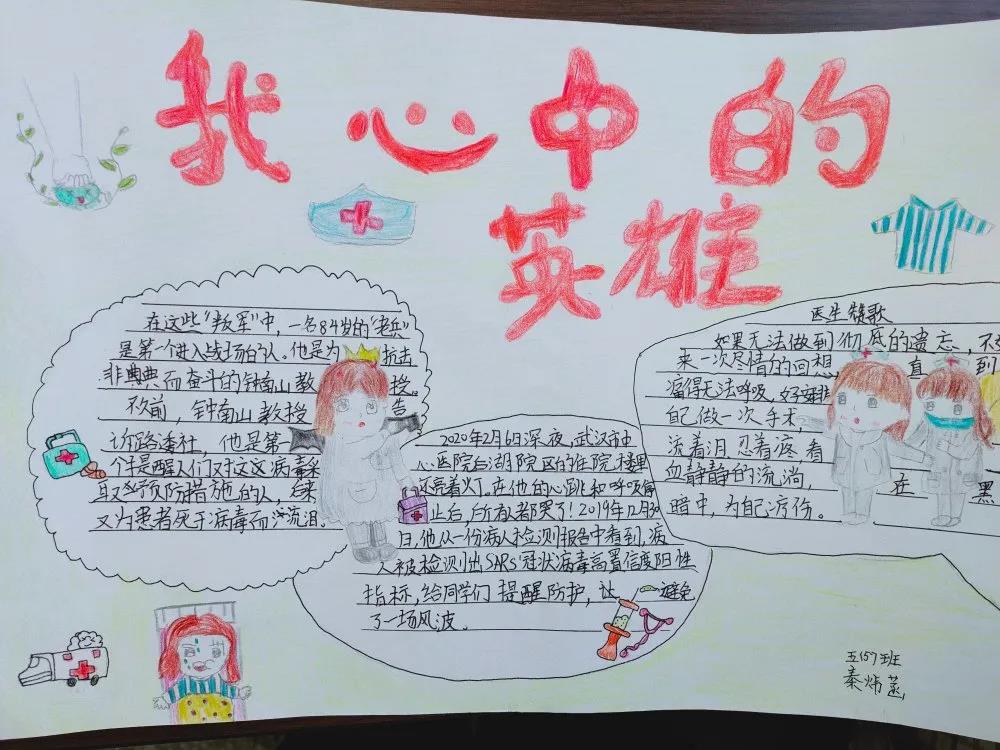 我心中的
英雄
在这些“叛军”中，一名84岁的“老兵”
是第一个进入战场的人。他是为抗击
非典典而奋斗的钟南山教授。
不久前，钟南山教授告
诉路透社，他是第一
个是醒人们对这次病毒采
取预防措施的人，后来
又为患者死于病毒而流泪。
2020年2月6日深夜，武汉市中
心医院后湖院区的住院楼里
还亮着灯。在他的心跳和呼吸停
止后，所有人都哭了！2019年12月30
日，他从一份病人检测报告中看到，病
人被检测出SARS冠状病毒高置信度阳性
指标，给同学们提醒防护，让避免
了一场风波。
医生赞歌
如果无法做到彻底的遗忘，不
来一次尽情的回想 直到
痛得无法呼吸，好安排
自己做一次手术，
流着泪 忍着疼 看
血静静的流淌， 在黑
暗中，为自己疗伤。
五157班
秦炜菡